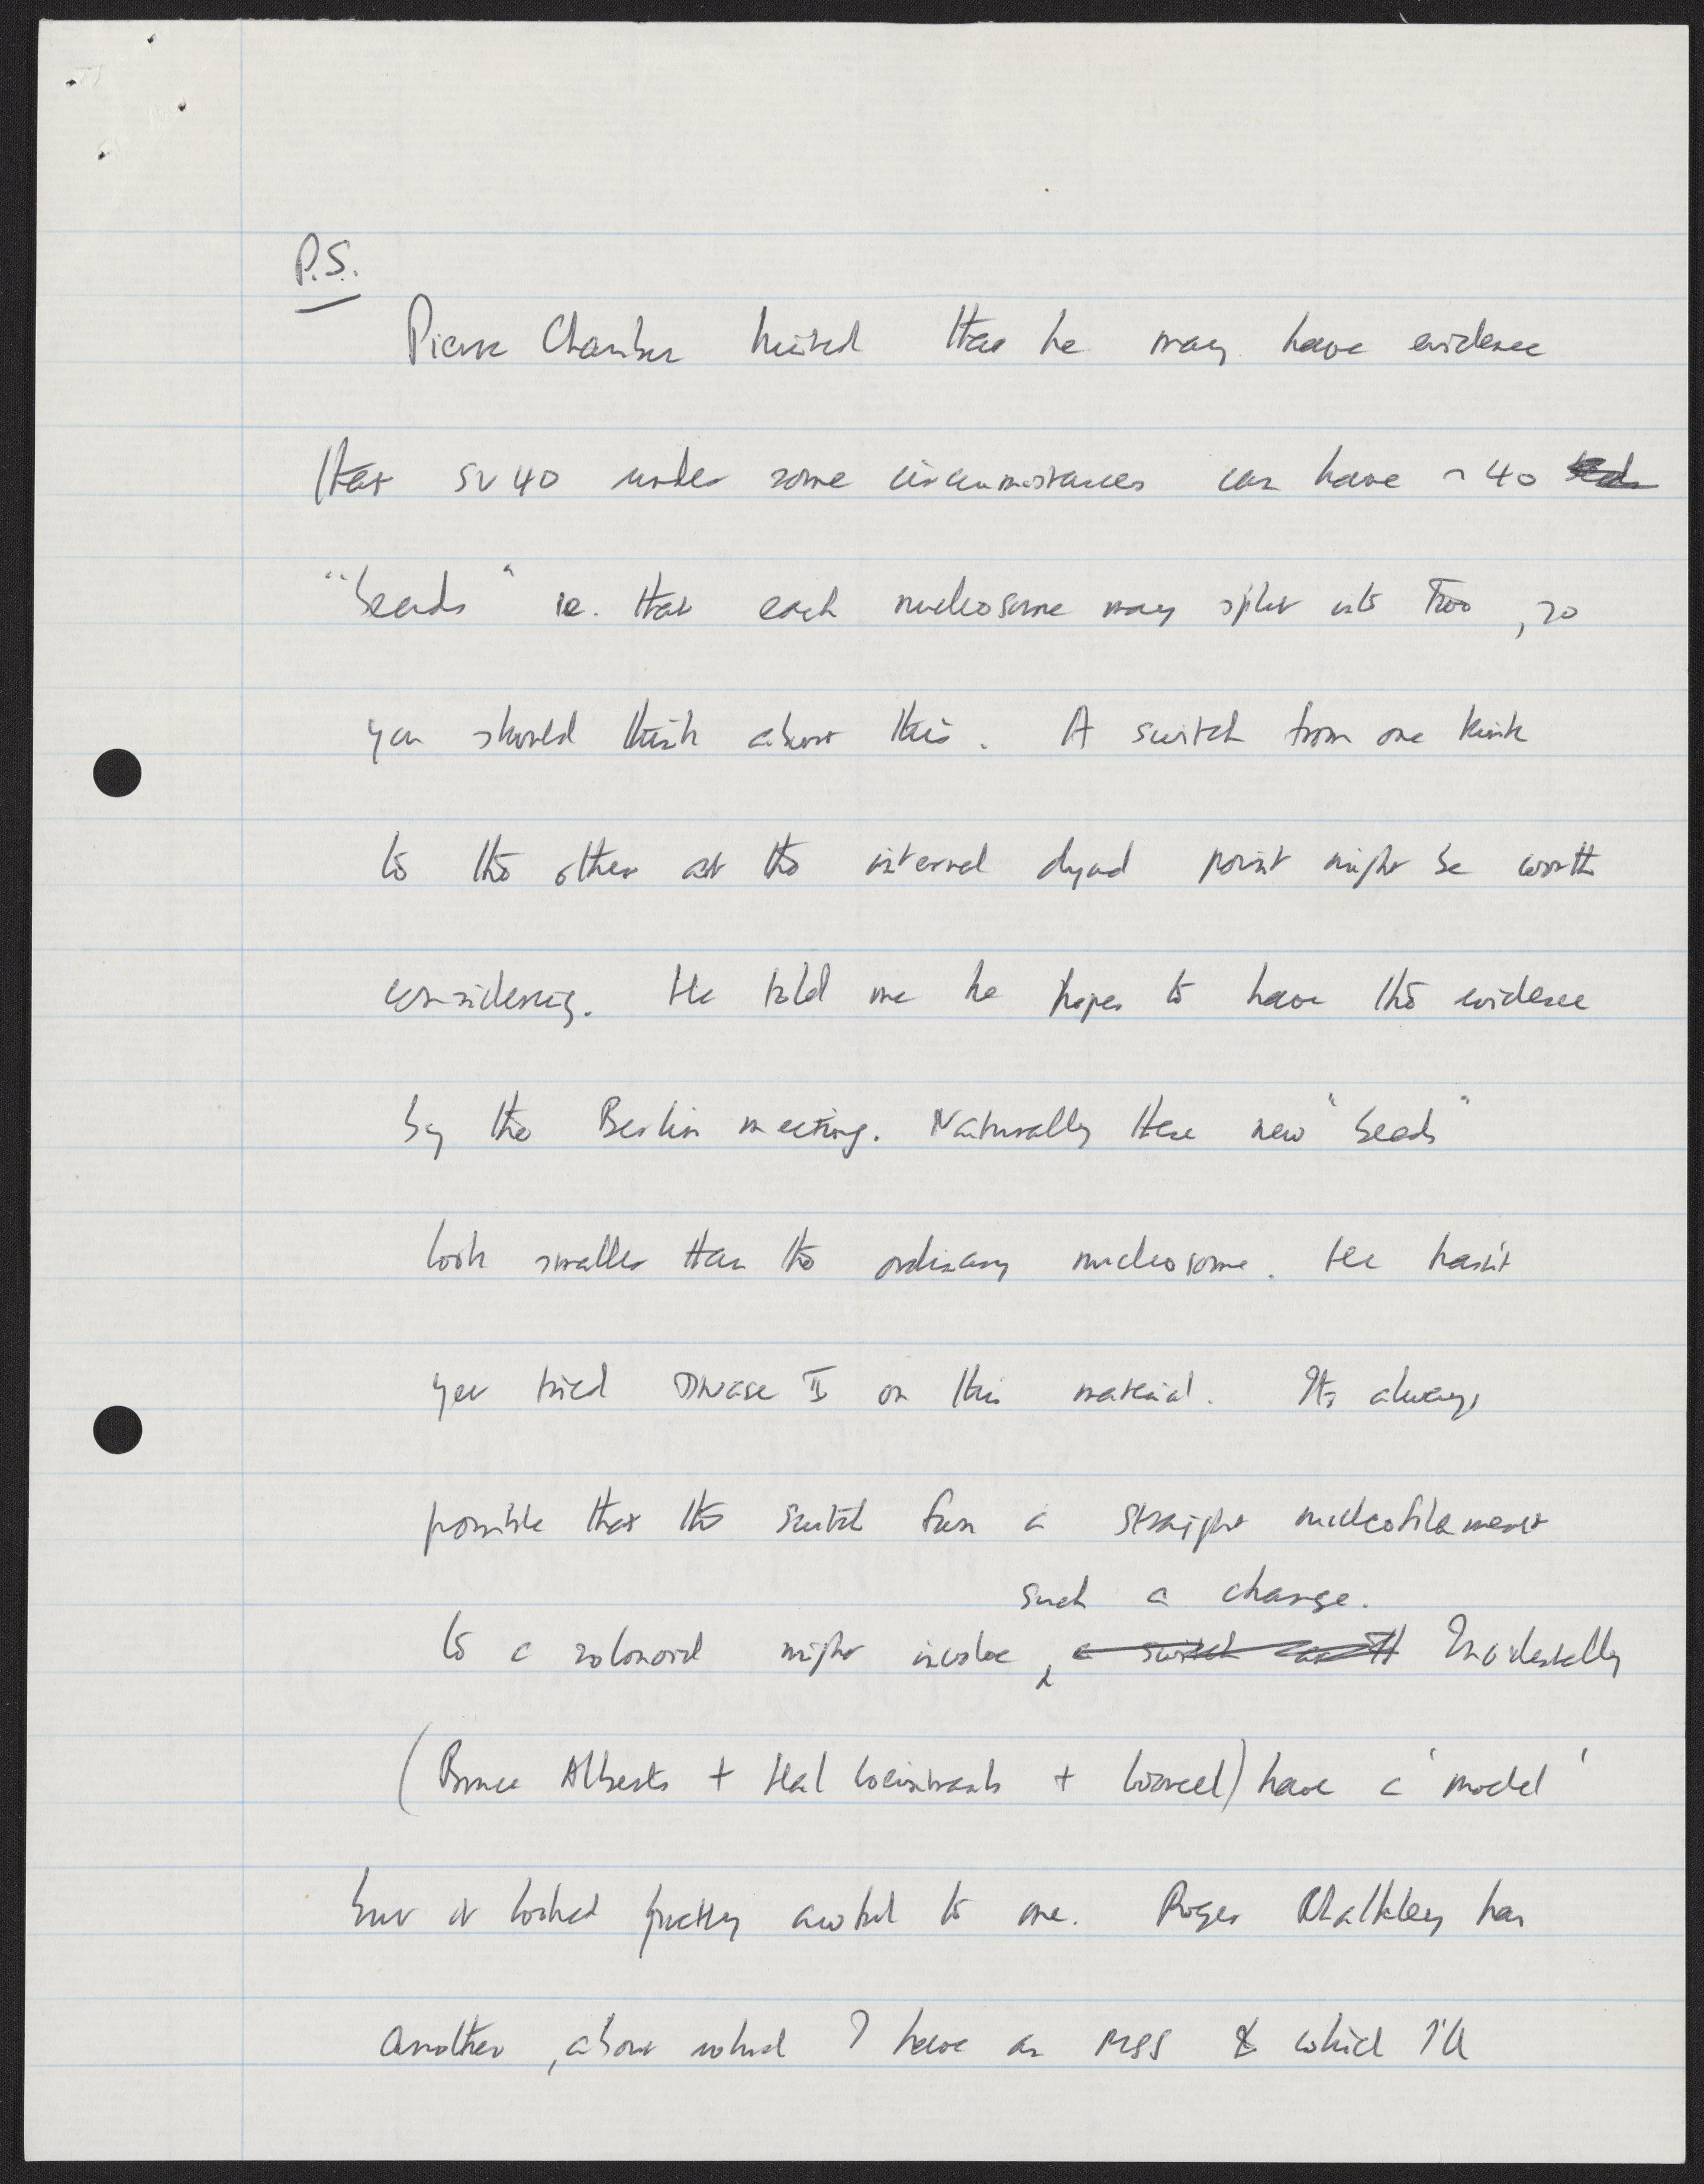 P.S.
Pierre Chambon hinted that he may have evidence
that SV40 under some circumstances can have ~ 40
"beads" ie. that each nucleosome may split into two, so
you should think about this. A switch from one kink
to the other at the internal dyad point might be worth
considering. He told me he hopes to have the evidence
by the Berlin meeting. Naturally these new "beads"
look smaller than the ordinary nucleosome. He hasn't
yet tried DNase II on this material. Its always
possible that the switch from a straight nucleofilament
such a change.
to a solonoid might involve a switch Incidentally
(Bruce Alberts + Hal Weintraub + Worcel) have a 'model'
but it looked pretty awful to me. Roger Chalkley has
another, about which I have an MSS & which I'll